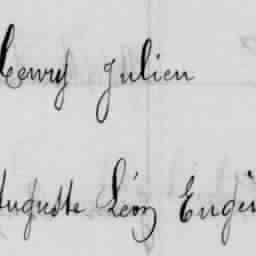 Henry Julien
Auguste Léon Eugèn